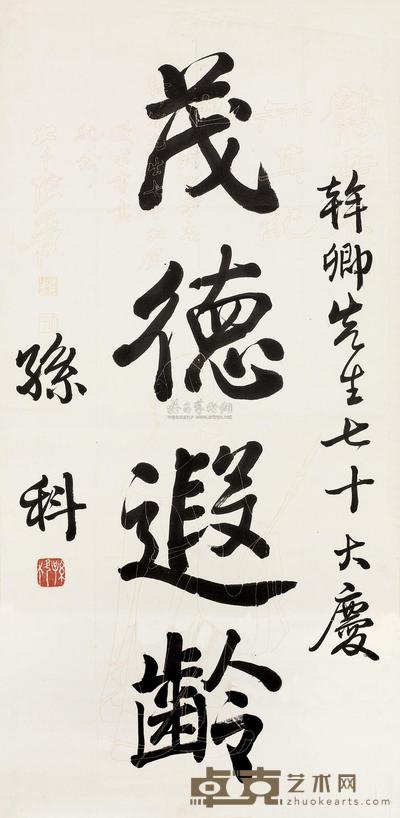 榦卿先生七十大慶
茂德遐齡
孫科
卓克艺术网
zhuokearts.com